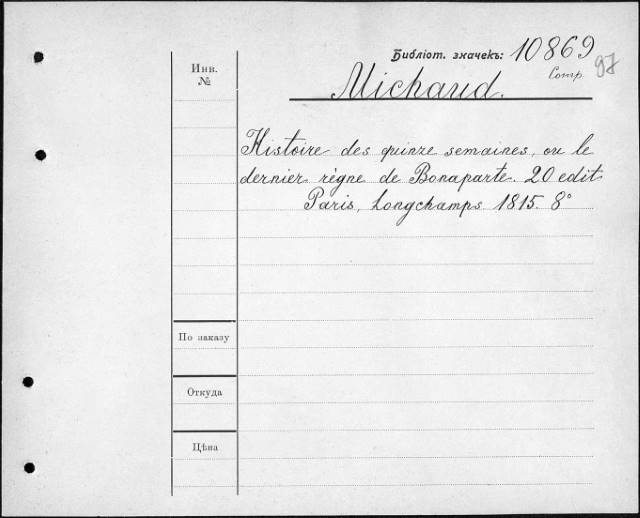 Библіот. значекъ: 10869
Comp. 97
Инв. №
Michaud.
Histoire des quinze semaines, ou le
dernier règne de Bonaparte. 20 edit
Paris, Longchamps 1815. 8°
По заказу
Откуда
Цѣна